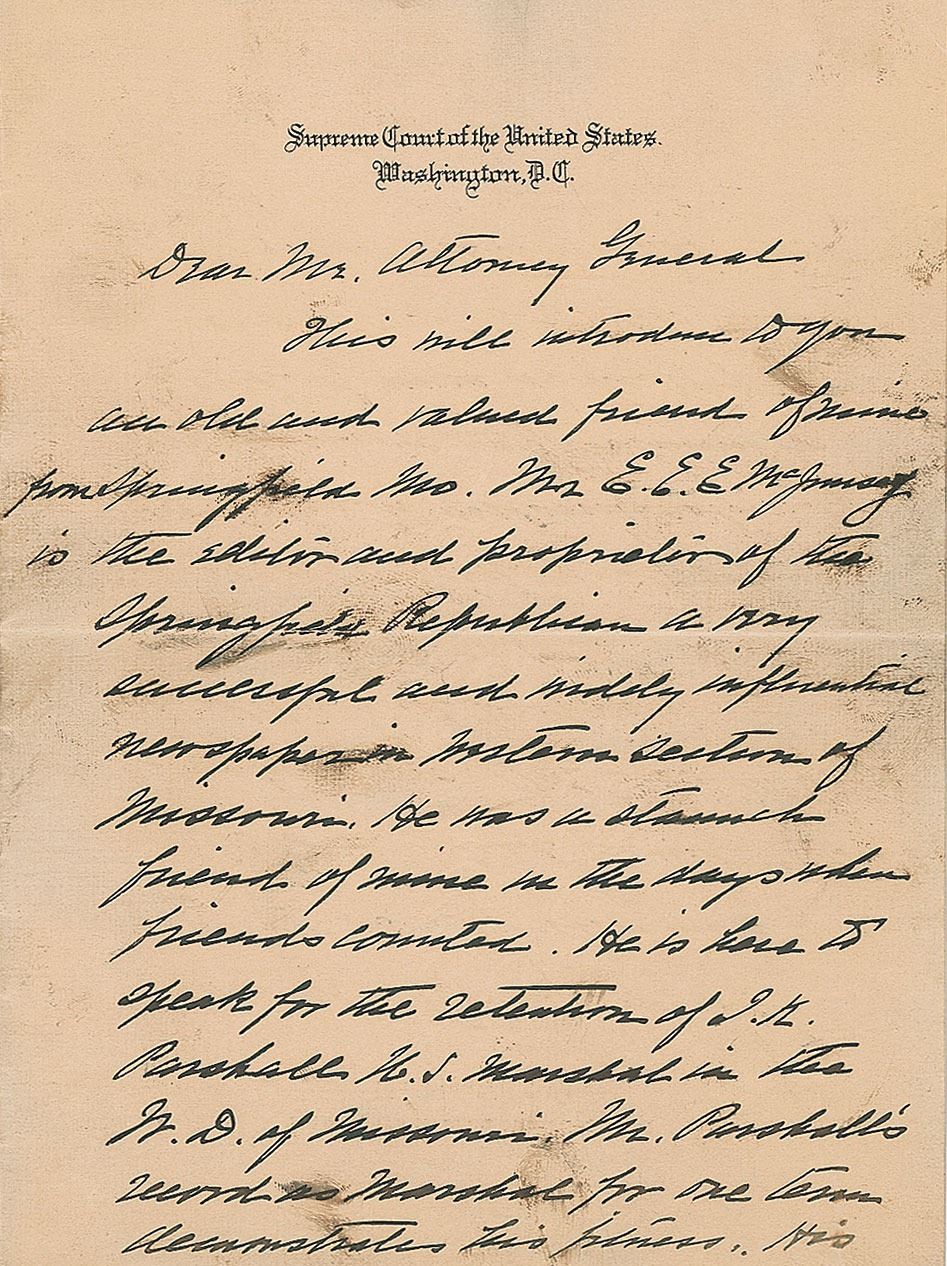 Supreme Court of the United States.
Washington, D.C.
Dear Mr. Attorney General
This will introduce to you
an old and valued friend of mine
from Springfield Mo. Mr E.E.E McJimsey
is the editor and proprietor of the
Springfield Republican a very
successful and widely influential
newspaper in Western section of
Missouri. He was a staunch
friend of mine in the days when
friends counted. He is here to
speak for the retention of I.K.
Parshall U.S. Marshal in the
W.D. of Missouri. Mr. Parshall's
record as Marshal for one term
demonstrates his fitness. His